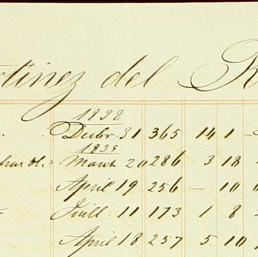 tinez del R
1832
Decbr. 31 365 14 1
1833
March 20 286 3 18
April 19 256 — 10
11 173 1 8
April 18 257 5 10